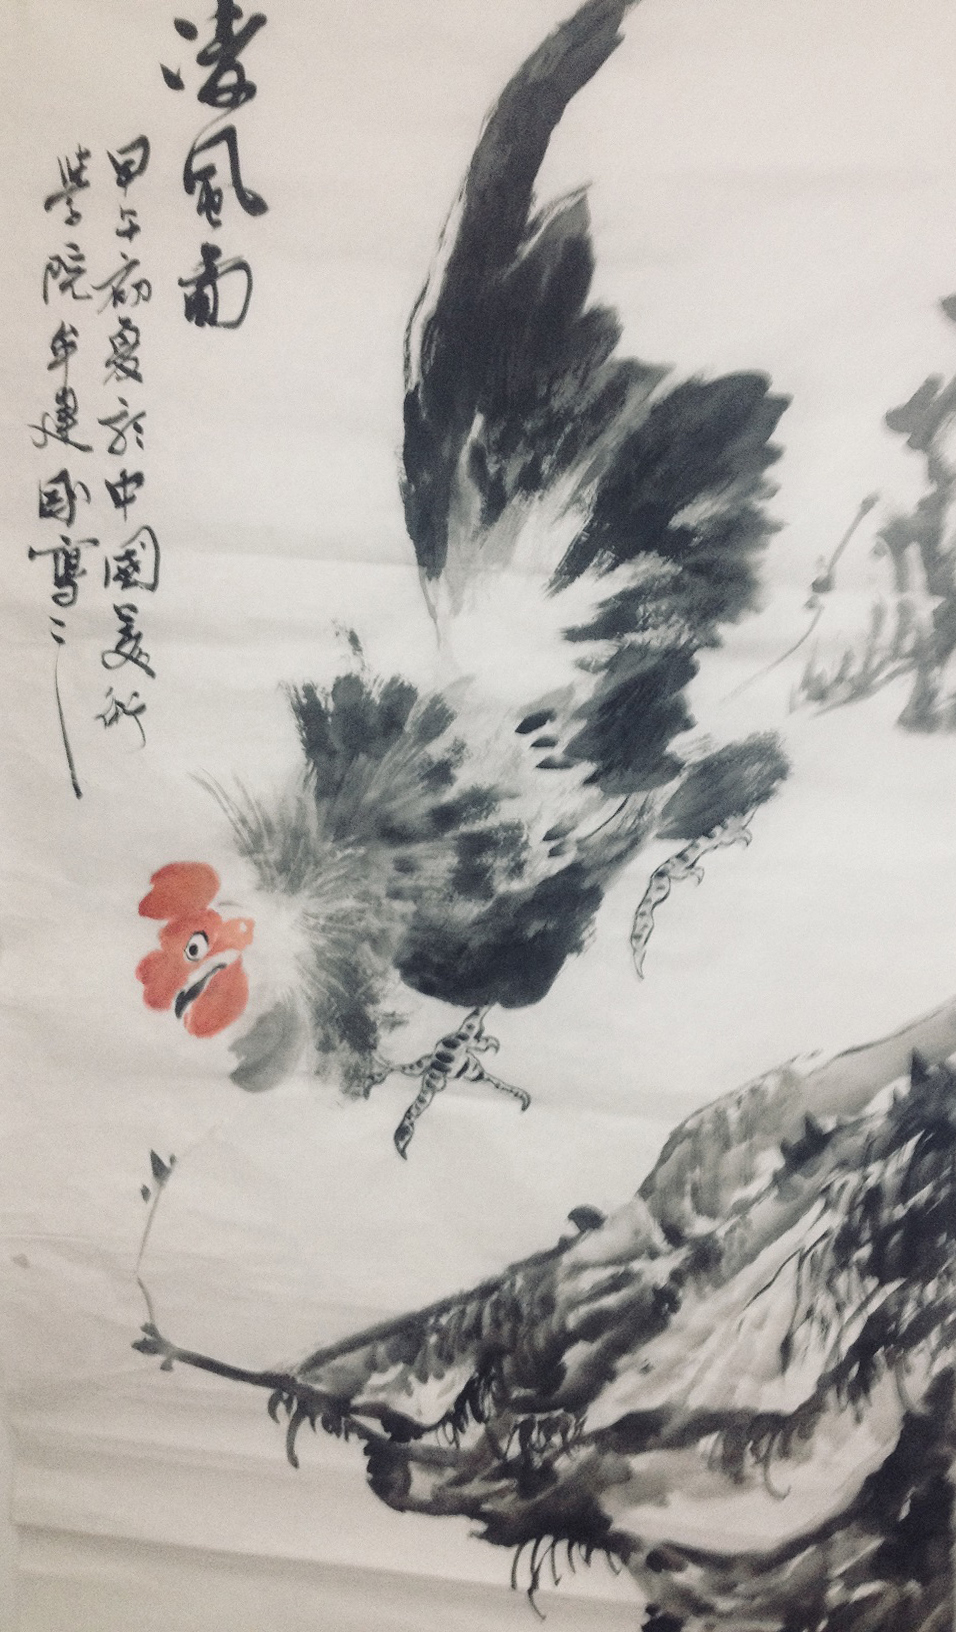 凌風圖
甲午初夏於中國美術
學院牟建國寫